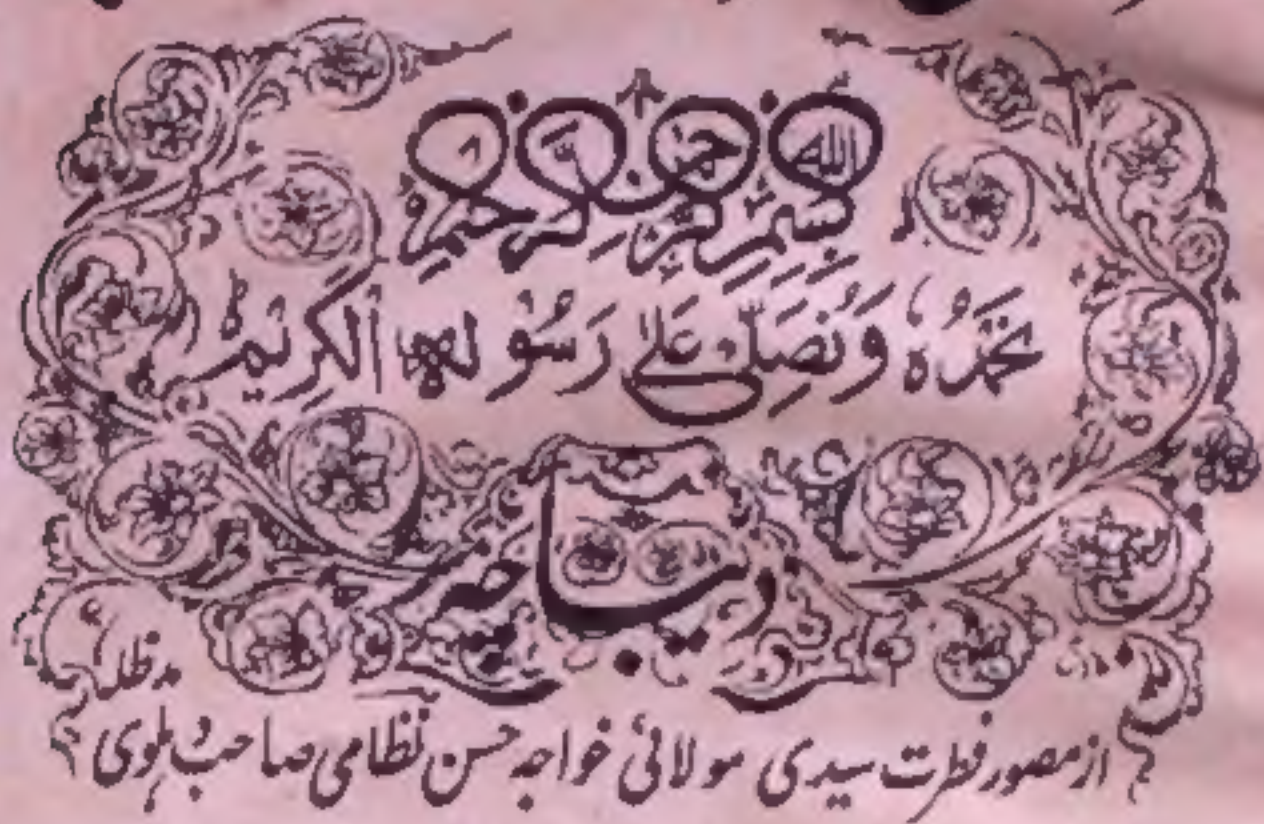 بسم الله الرحمن الرحيم
نَحْمَدُهٗ وَنُصَلِّىْ عَلٰى رَسُوْلِهِ الْكَرِيْمِ
دیباچہ
از مصور فطرت سیدی مولائی خواجہ حسن نظامی صاحب دہلوی مدظلہ